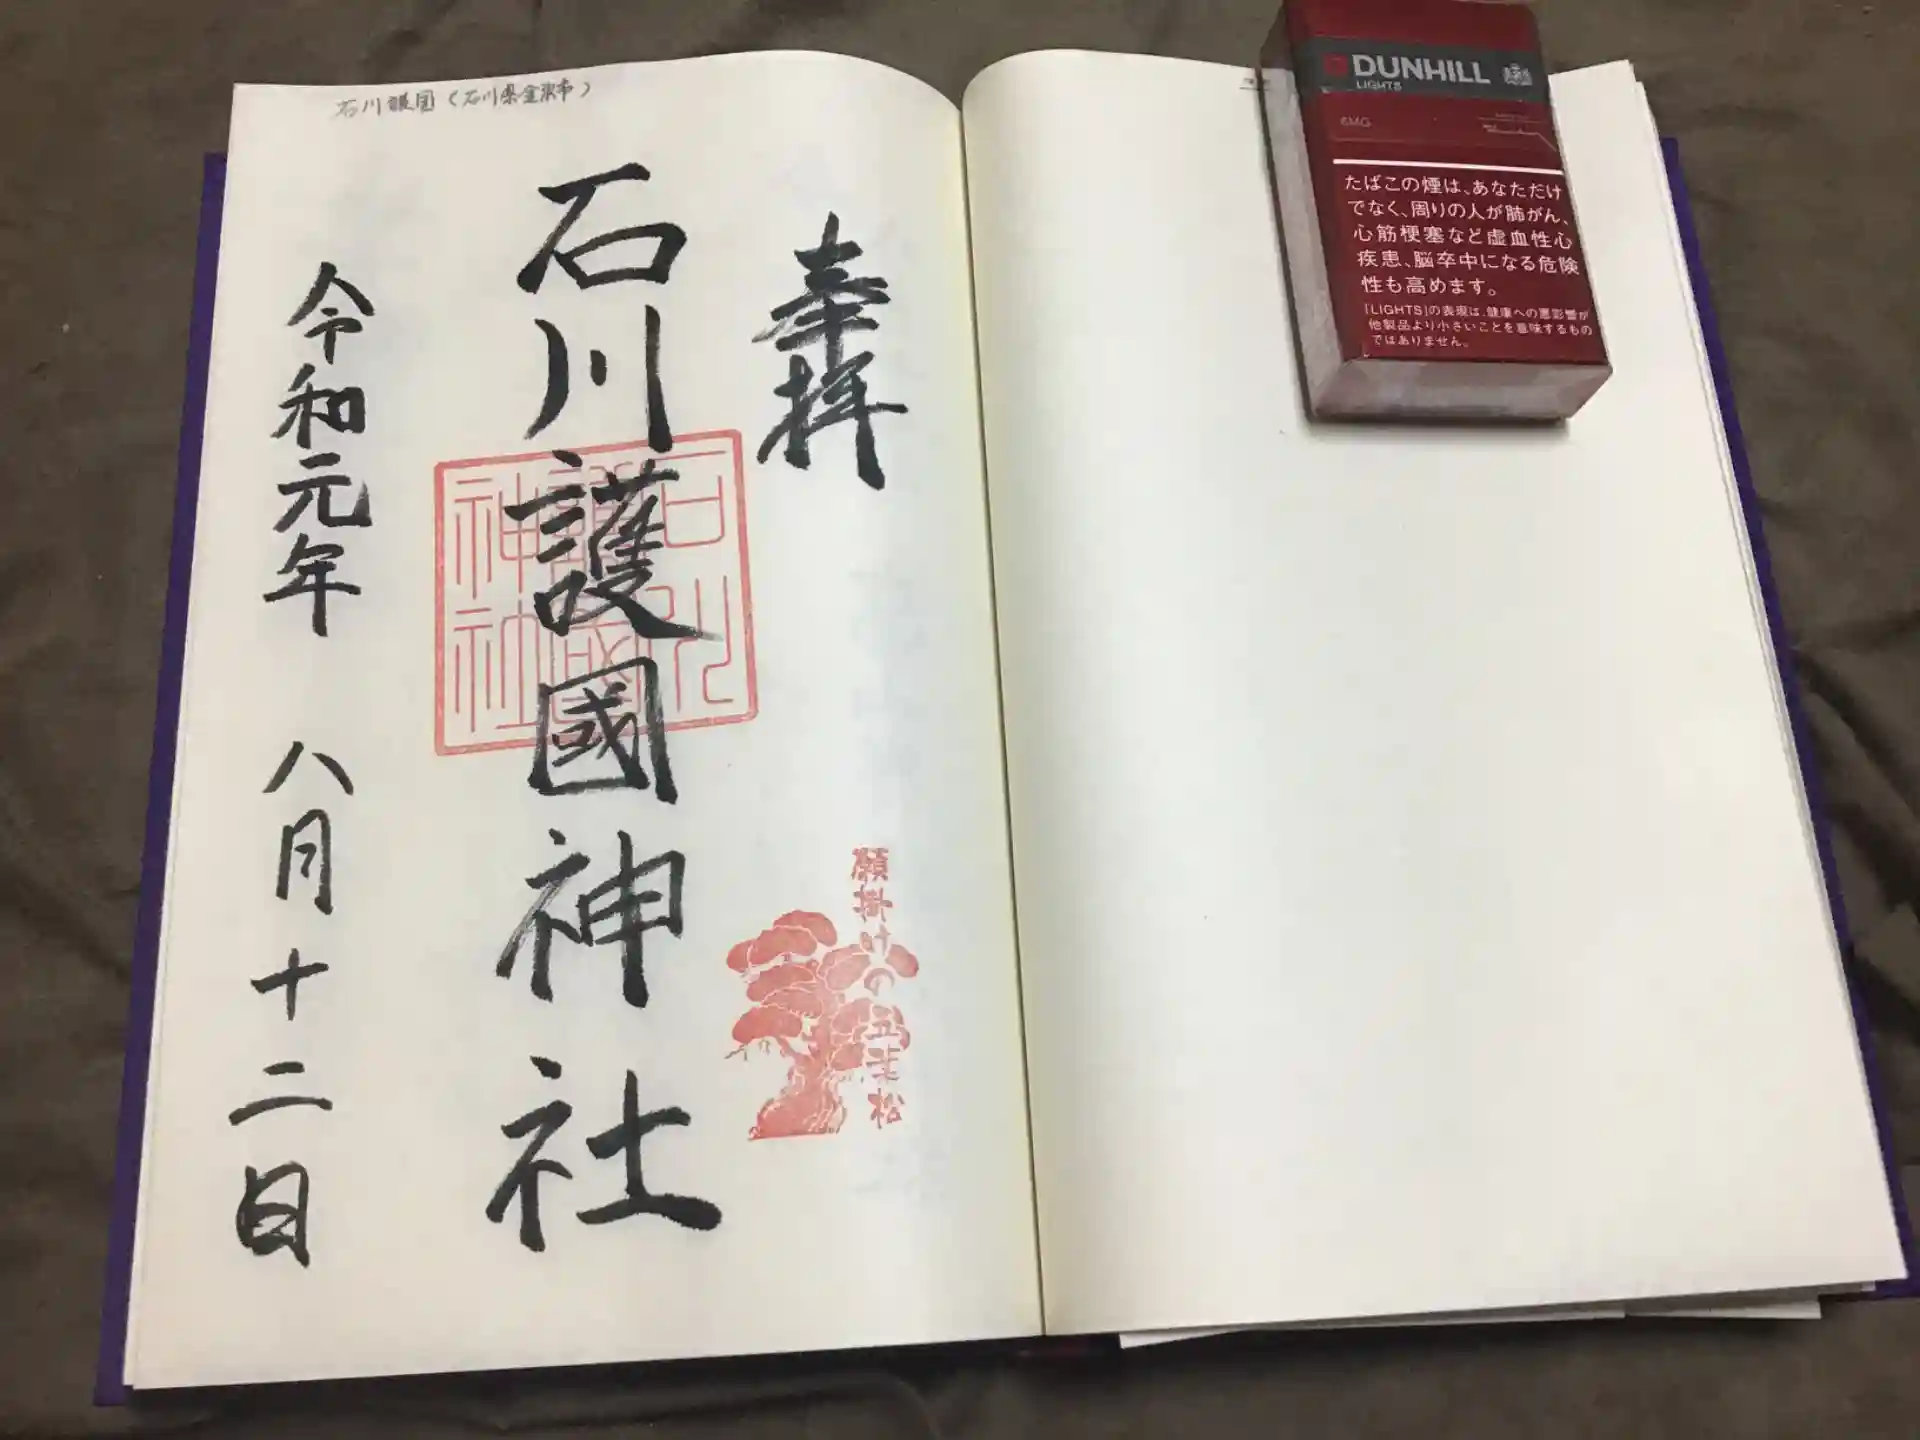 石川護国(石川県金沢市)
奉拝
石川護國神社
令和元年 八月十二日
石川
護國
神社
願掛けの五葉松
DUNHILL
LIGHTS
6MG
たばこの煙は、あなただけ
でなく、周りの人が肺がん、
心筋梗塞など虚血性心
疾患、脳卒中になる危険
性も高めます。
「LIGHTS」の表現は、健康への悪影響が
他製品より小さいことを意味するもの
ではありません。